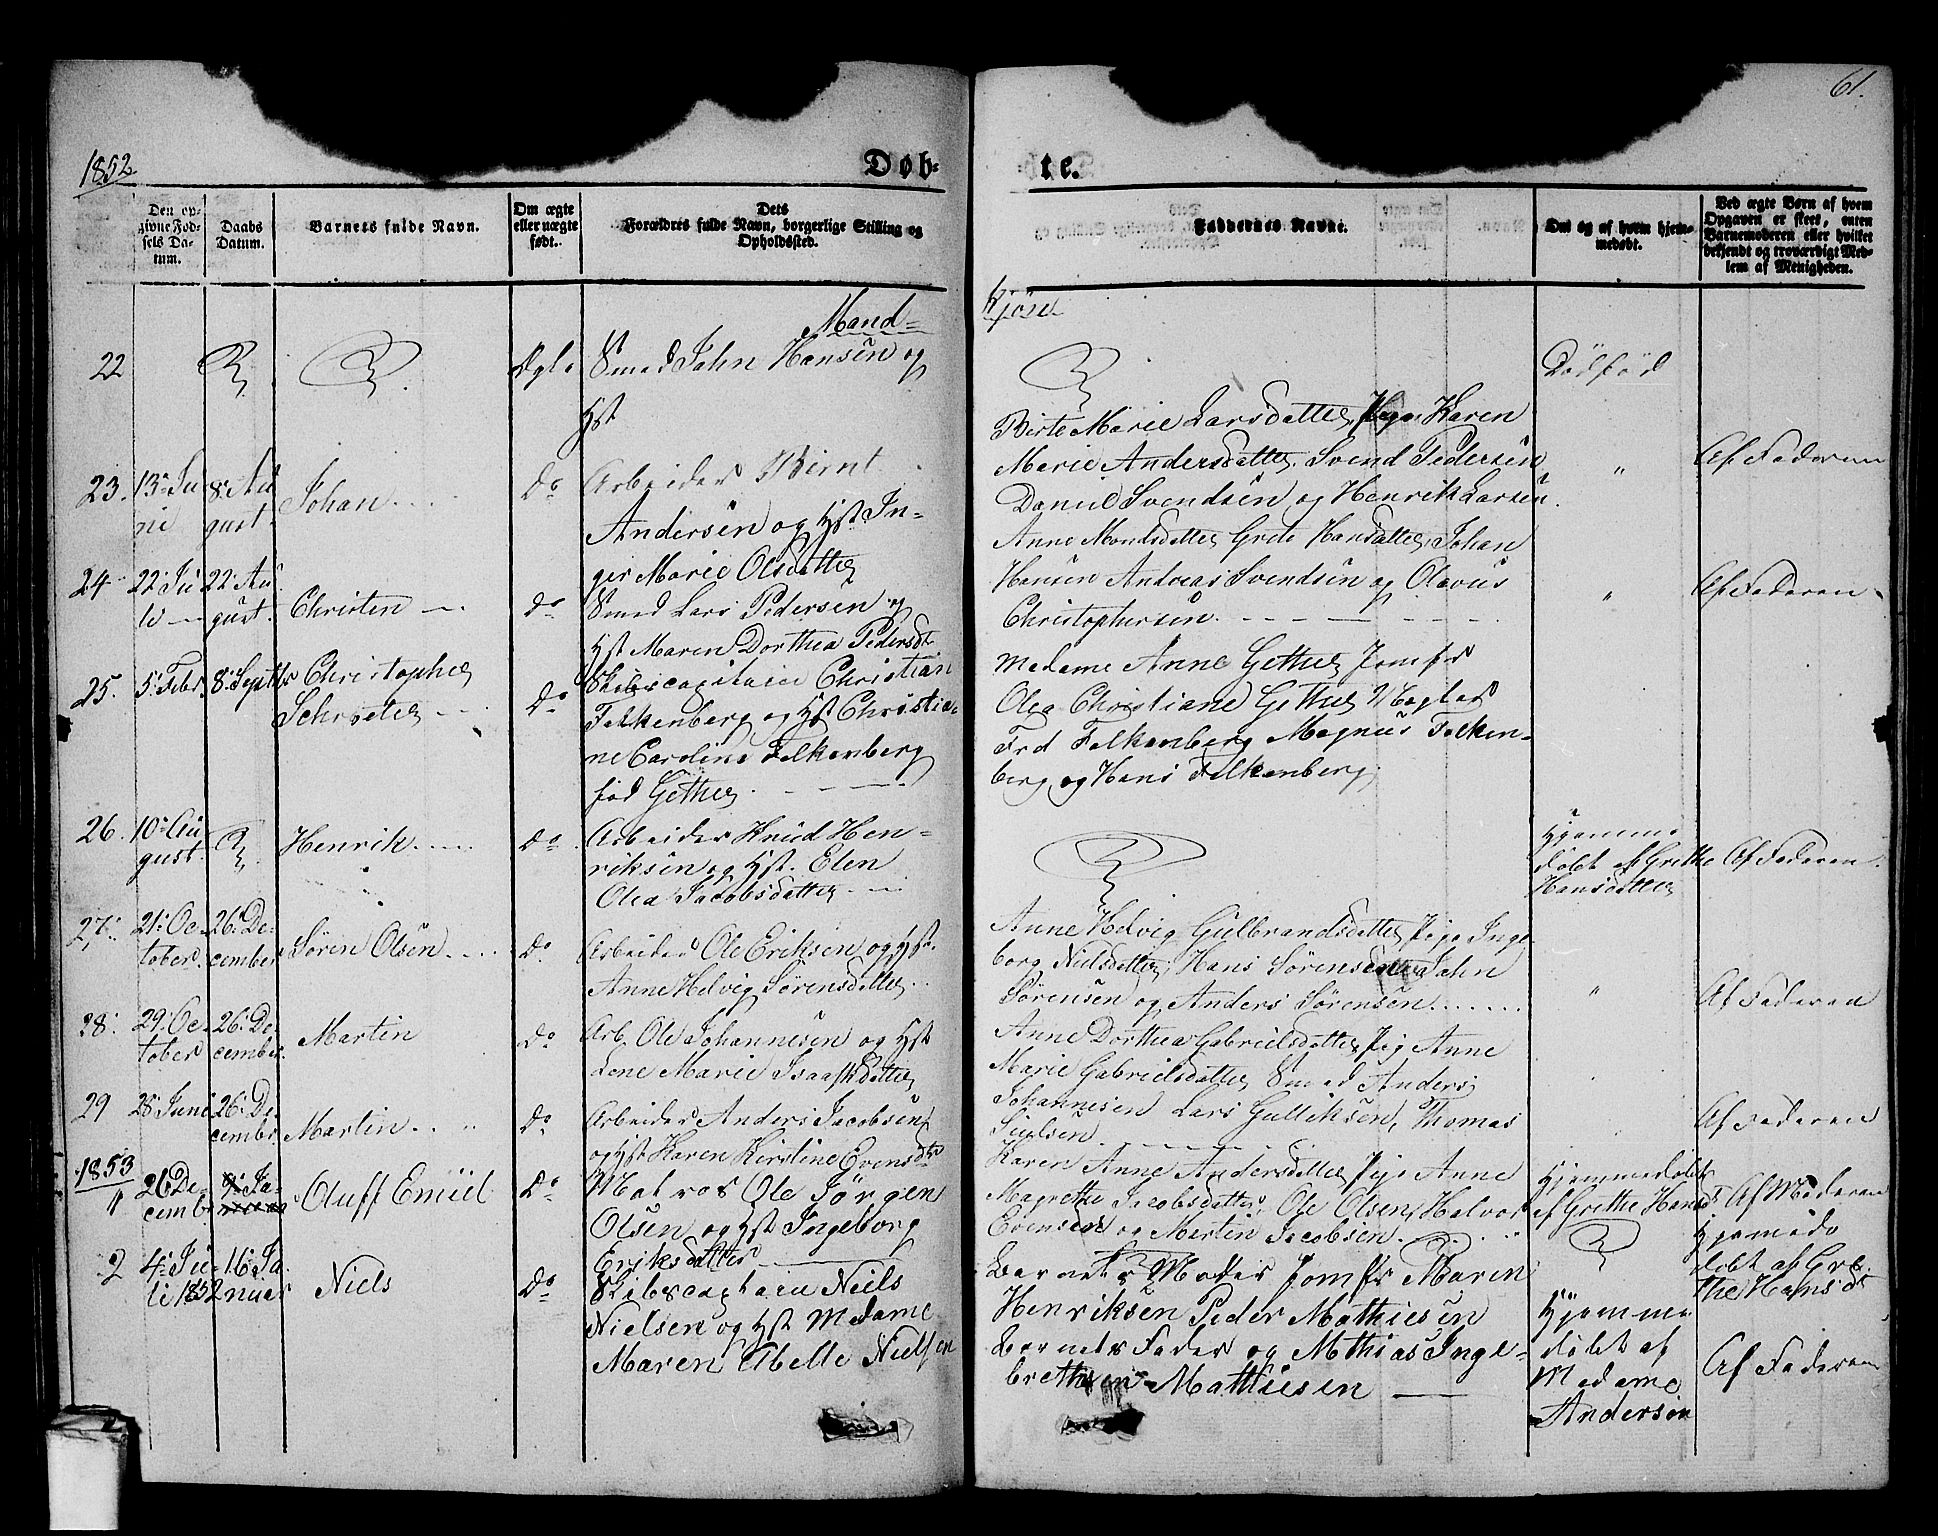 61.
1852
Døb-
te.
Den op-
givne Fød-
sels Da-
tum.
Daabs
Datum.
Barnets fulde Navn.
Om ægte
eller uægte
født.
Dets
Forældres fulde Navn, borgerlige Stilling og
Opholdssted.
Faddernes Navne.
Om og af hvem hjem-
medøbt.
Ved ægte Børn af hvem
Opgaven er skeet, enten
Barnemoderen eller hvilket
bekjendt og troværdigt Med-
lem af Menigheden.
Mand-
kjön
22
Smed John Hansen og
Hst
Dødfød
23. 13de Ju
ni
8de Au
gust.
Johan
Do
Arbeider Bernt
Andersen og Hst In-
ger Marie Olsdatter
Birte Marie Larsdatter, Pige Karen
Marie Andersdatter, Svend Pedersen
Daniel Svendsen og Henrik Larsen.
"
Af Faderen
24 22de Ju
li
22de Au
gust.
Christen
Do
Smed Lars Pedersen og
Hst Maren Dorthea Pedersdt
Anne Mondsdatter Grete Hansdatter, Johan
Hansen Andreas Svendsen og Olavus
Christophersen
"
Af Faderen
25. 5te Febr. 8de Septbr
Christopher
Schrøeter
Do
Skibscapitain Christian
Falkenberg og Hst Christia-
ne Caroline Falkenberg
fød Gether
Madame Anne Gether Jomfr
Olea Christiane Gether
Frd Falkenberg Magnus Falken-
berg og Hans Falkenberg,
26. 10de Au
gust.
Henrik
Do
Arbeider Knud Hen-
riksen og Hst. Elen
Olea Jacobsdatter
Hjemme
døbt af Grethe
Hansdatter
Af Faderen.
27. 21de Oc-
tober.
26de De-
cember
Søren Olsen
Do.
Arbeider Ole Eriksen og Hst.
Anne Helvig Sörensdatter
Anne Helvig Gulbrandsdatter Pige Inge-
borg Nielsdatter, Hans Sørensen John
Sørensen og Anders Sørensen
"
Af Faderen
28. 29de Oc-
tober
26de De-
cember.
Martin
Do
Arb. Ole Johannesen og Hst
Lene Marie Isaaksdatter
Anne Dorthea Gabrielsdatter Pig Anne
Marie Gabrielsdatter Smed Anders
Johannesen Lars Gulliksen, Thomas
29 28 Juni
26de De-
cembr.
Martin
Do
Arbeider Anders Jacobsen
og Hst Karen Kirstine Evensdtr
Karen Anne Andersdatter Pige Anne
Magrethe Jacobsdatter, Ole Olsen, Halvor
Evensen og Martin Jacobsen
Af Faderen
1853
" 26 De-
cembr
9de Ja-
Oluff Emiel
Do
Matros Ole Jørgen
Olsen og Hst Ingeborg
Eriksdatter
Hjemmedøbt
af Grethe Hansdt
Af Moderen
Hjemmedø
døbt af Gre-
the Hansdt
2 4de Ju-
li 1852
16de Ja-
nuar
Niels
Do
Skibscaptain Niels
Nielsen og Hst Madame
Maren Abelle Nielsen
Barnets Moder Jomfr Maren
Henriksen Peder Mathiesen
Barnets Fader og Mathias Inge-
brethsen Mathiesen
Hjemme
døbt af
Madame
Andersen
Af Faderen